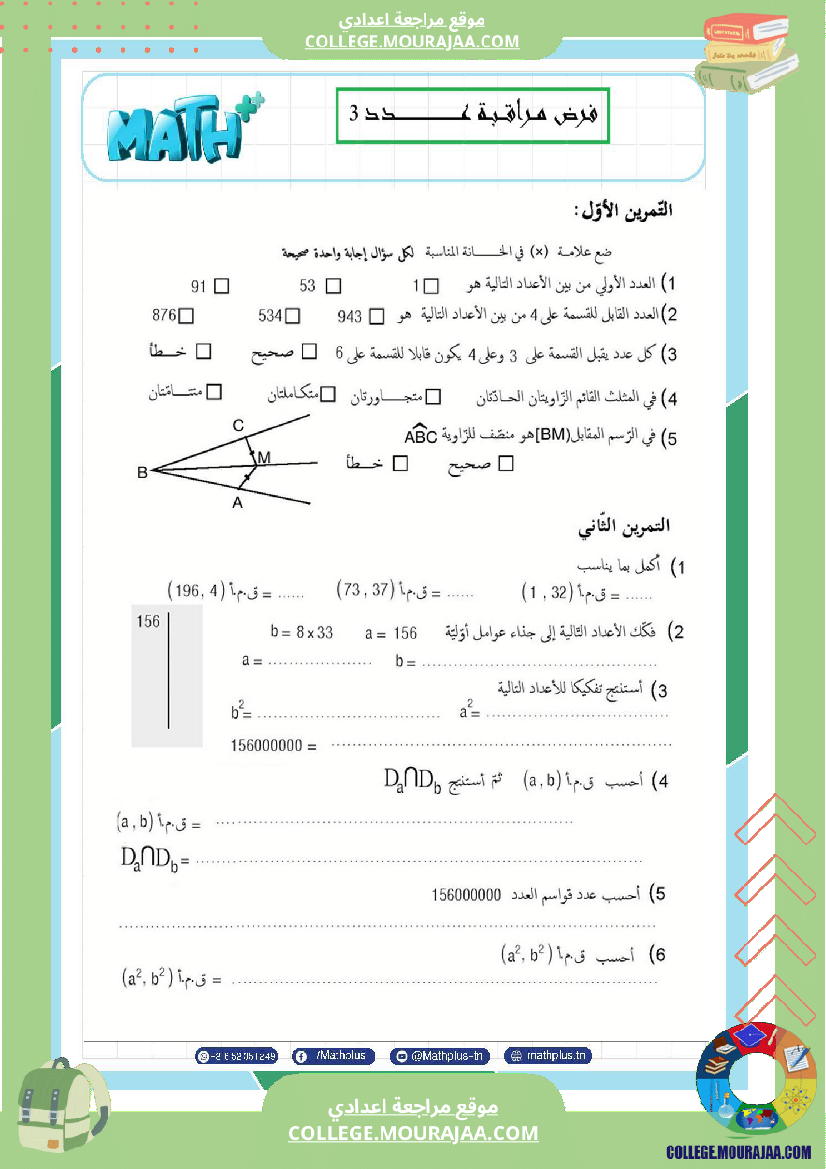 موقع مراجعة اعدادي
COLLEGE.MOURAJAA.COM
MATH
فرض مراقبة عـــــدد 3
التّمرين الأوّل:
ضع علامة (×) في الخـــانة المناسبة لكل سؤال إجابة واحدة صحيحة
1) العدد الأولي من بين الأعداد التالية هو □ 1 □ 53 □ 91
2) العدد القابل للقسمة على 4 من بين الأعداد التالية هو □ 943 □ 534 □ 876
3) كل عدد يقبل القسمة على 3 وعلى 4 يكون قابلا للقسمة على 6 □ صحيح □ خـطأ
4) في المثلث القائم الزّاويتان الحـادّتان □ متجـــاورتان □ متكـاملتان □ متتـــامّتان
5) في الرّسم المقابل [BM) هو منصّف للزّاوية ABC
□ صحيح □ خـطأ
C
M
B
A
التمرين الثّاني
1) أكمل بما يناسب
ق.م.أ (1 , 32) = ...... ق.م.أ (73 , 37) = ...... ق.م.أ (196 , 4) = ......
2) فكّك الأعداد التّالية إلى جذاء عوامل أوّليّة a = 156 b = 8 x 33
156
a = .................... b = ..........................................
3) أستنتج تفكيكا للأعداد التالية
b²= .................................. a²= ..................................
156000000 = ..............................................................
4) أحسب ق.م.أ (a , b) ثمّ أستنتج Da∩Db
ق.م.أ (a , b) = ..................................................................
Da∩Db = ..................................................................................
5) أحسب عدد قواسم العدد 156000000
..................................................................................................
6) أحسب ق.م.أ (a², b²)
ق.م.أ (a², b²) = ..............................................................................
/Mathplus
@Mathplus-tn
mathplus.tn
موقع مراجعة اعدادي
COLLEGE.MOURAJAA.COM
COLLEGE.MOURAJAA.COM